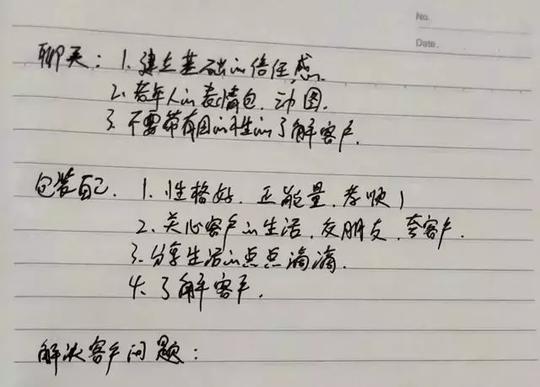 No.
Date.
聊天：1. 建立基础的信任感.
2. 老年人的表情包、动图.
3. 不要带有目的性的了解客户.
包装自己. 1. 性格好、正能量、孝顺
2. 关心客户的生活、交朋友、夸客户.
3. 分享生活的点点滴滴.
4. 了解客户.
解决客户问题：